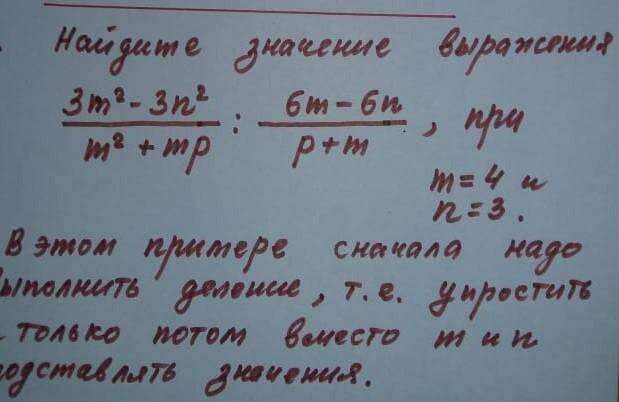 Найдите значение выражения
3m² - 3n² / m² + mp : 6m - 6n / p + m , при
m = 4 и
n = 3 .
В этом примере сначала надо
выполнить деление, т.е. упростить
и только потом вместо m и n
подставлять значения.